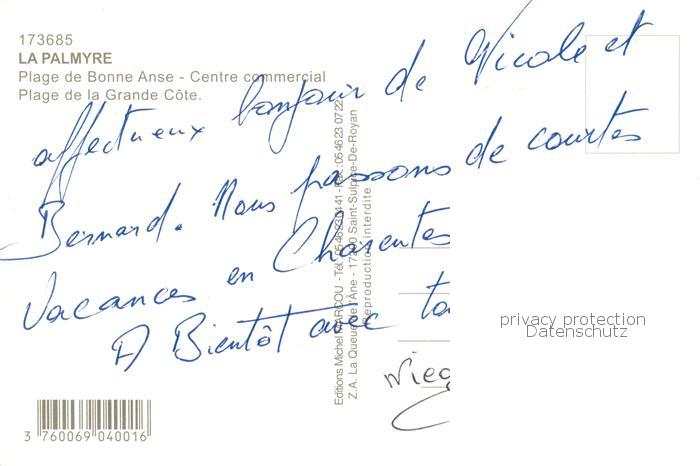 173685
LA PALMYRE
Plage de Bonne Anse - Centre commercial
Plage de la Grande Côte.
affectueux bonjour de Nicole et
Bernard. Nous passons de courtes
vacances en Charentes
A Bientôt avec ta
Editions Michel MARCOU - Tél. 0546230441 - Fax : 0546230722
Z.A. La Queue de l'Âne - 17200 Saint-Sulpice-De-Royan
Reproduction interdite
privacy protection
Datenschutz
3 760069 040016